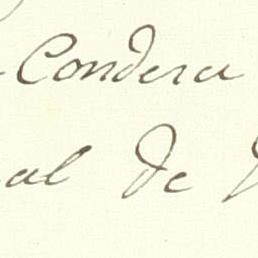 Condesa
al de